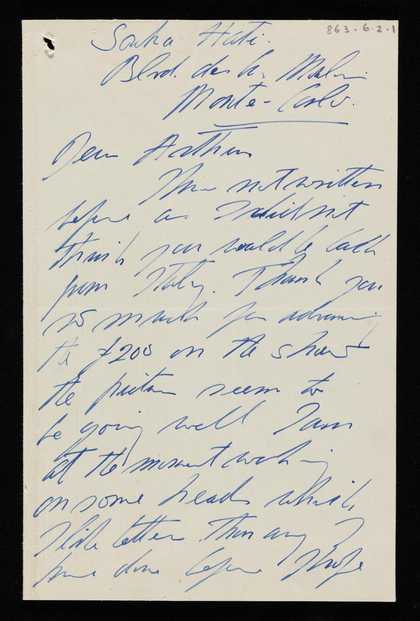 863-6-2-1
Hotel.
Blvd. des Moulins
Monte-Carlo.
Dear Arthur
I have not written
before as I did not
think you would be back
from Italy. Thank you
so much for advancing
the £200 on the show
the pictures seem to
be going well I am
at the moment working
on some heads which
I like better than any I
have done before I hope